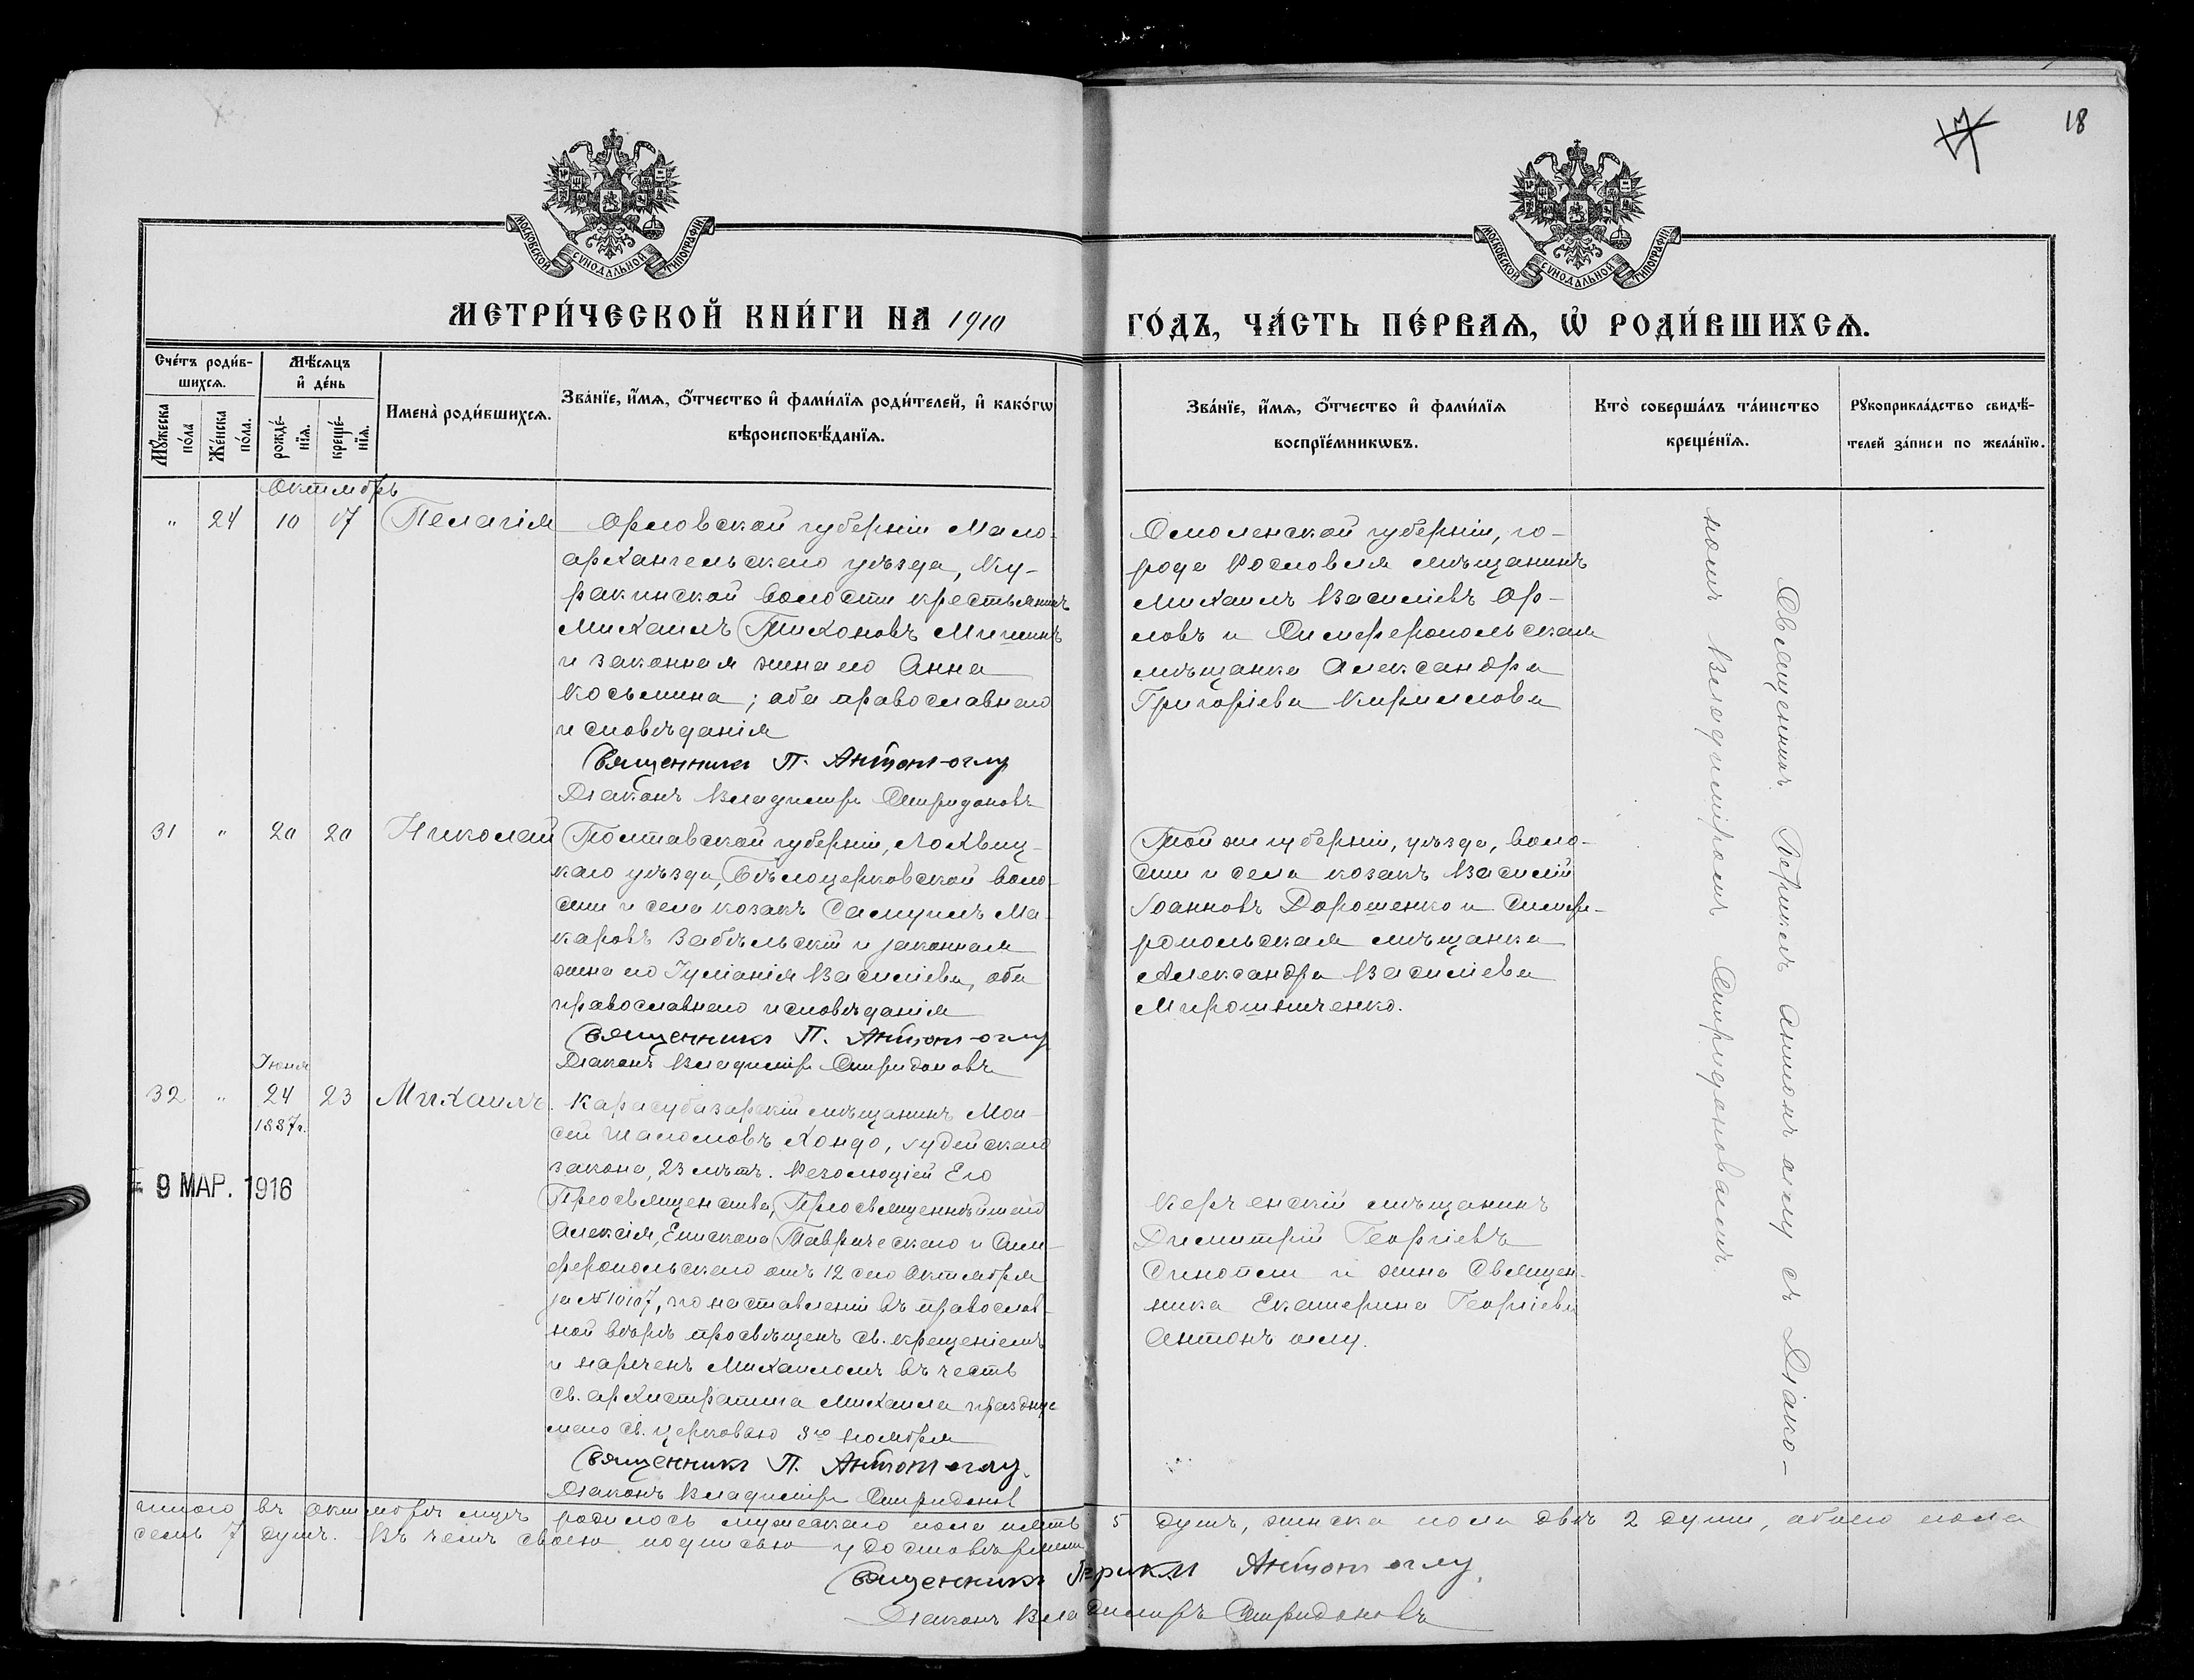 17
18
МОСКОВСКОЙ СѴНОДАЛЬНОЙ ТИПОГРАФІИ.
МОСКОВСКОЙ СѴНОДАЛЬНОЙ ТИПОГРАФІИ.
МЕТРИ́ЧЕСКОЙ КНИ́ГИ НА 1910
ГО́ДЪ, ЧА́СТЬ ПЕ́РВАѦ, Ѡ҆ РОДИ́ВШИХСѦ.
Сче́тъ роди́в-
шихсѧ.
Мꙋ́жеска по́ла
Же́нска по́ла.
Мѣ́сѧцъ
и҆ де́нь
рожде́-
нїѧ.
креще́-
нїѧ.
Имена̀ роди́вшихсѧ.
Зва́нїе, и҆́мѧ, ѻ҆́тчество и҆ фами́лїѧ роди́телей, и҆ како́гѡ
вѣроисповѣ́данїѧ.
Зва́нїе, и҆́мѧ, ѻ҆́тчество и҆ фами́лїѧ
воспрїе́мникѡвъ.
Кто̀ соверша́лъ та́инство
креще́нїѧ.
Рꙋкоприкла́дство свидѣ́-
телей за́писи по жела́нїю.
Октябрь
„ 24 10 17 Пелагія
Орловской губерніи Мало-
архангельскаго уѣзда, Ку-
ракинской волости крестьянинъ
Михаилъ Тихоновъ Мишинъ
и законная жена его Анна
Косьмина; оба православнаго
исповѣданія
Священникъ П. Антонъ-оглу
Діаконъ Владиміръ Спиридоновъ
Смоленской губерніи, го-
рода Рославля мѣщанинъ
Михаилъ Василіевъ Ор-
ловъ и Симферопольская
мѣщанка Александра
Григоріева Кириллова
31 „ 20 20 Николай
Полтавской губерніи, Лохвиц-
каго уѣзда, Бѣлоцерковской воло-
сти и села козакъ Самуилъ Ма-
каровъ Забѣльскій и законная
жена его Іуліанія Василіева, оба
православнаго исповѣданія
Священникъ П. Антонъ-оглу
Діаконъ Владиміръ Спиридоновъ
Той же губерніи, уѣзда, воло-
сти и села козакъ Василій
Іоанновъ Дорошенко и Симфе-
ропольская мѣщанка
Александра Василіева
Мирошниченко.
Іюня
32 „ 24 23 Михаилъ.
1887 г.
Карасубазарскій мѣщанинъ Мои-
сей Шаломовъ Хондо, іудейскаго
закона, 23 лѣтъ. Резолюціей Его
Преосвященства, Преосвященнѣйшаго
Алексія, Епископа Таврическаго и Сим-
феропольскаго отъ 12 сего Октября
за № 10107, по наставленіи въ православ-
ной вѣрѣ просвѣщенъ св. крещеніемъ
и нареченъ Михаиломъ въ честь
св. архистратига Михаила праздну-
емаго св. церковью 8го ноября
Священникъ П. Антонъ оглу.
Діаконъ Владиміръ Спиридоновъ
9 МАР. 1916
Керченскій мѣщанинъ
Димитрій Георгіевъ
Синопли и жена Священ-
ника Екатерина Георгіева
Антонъ оглу.
Священникъ Периклъ Антонъ оглу съ Діако-
номъ Владиміромъ Спиридоновымъ
Итого въ октябрѣ мцѣ родилось мужескаго пола пять 5 душъ, женска пола двѣ 2 души, обоего пола
семь 7 душъ. Въ чемъ своею подписью удостовѣряемъ
Священникъ Периклъ Антонъ оглу.
Діаконъ Владиміръ Спиридоновъ